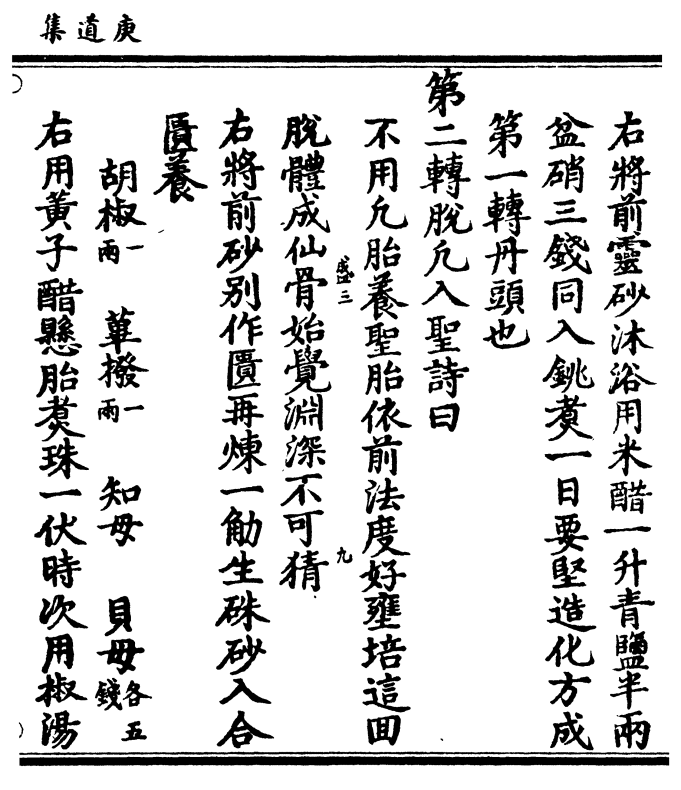 庚道集
右將前靈砂沐浴用米醋一升青鹽半兩
盆硝三錢同入銚煑一日要堅造化方成
第一轉丹頭也
第二轉脫凡入聖詩曰
不用凡胎養聖胎依前法度好壅培這回
脫體成仙骨始覺淵深不可猜
盛三
九
右將前砂别作匱再煉一觔生硃砂入合
匱養
胡椒一兩 蓽撥一兩 知母 貝母各五錢
右用黃子醋懸胎煑珠一伏時次用椒湯